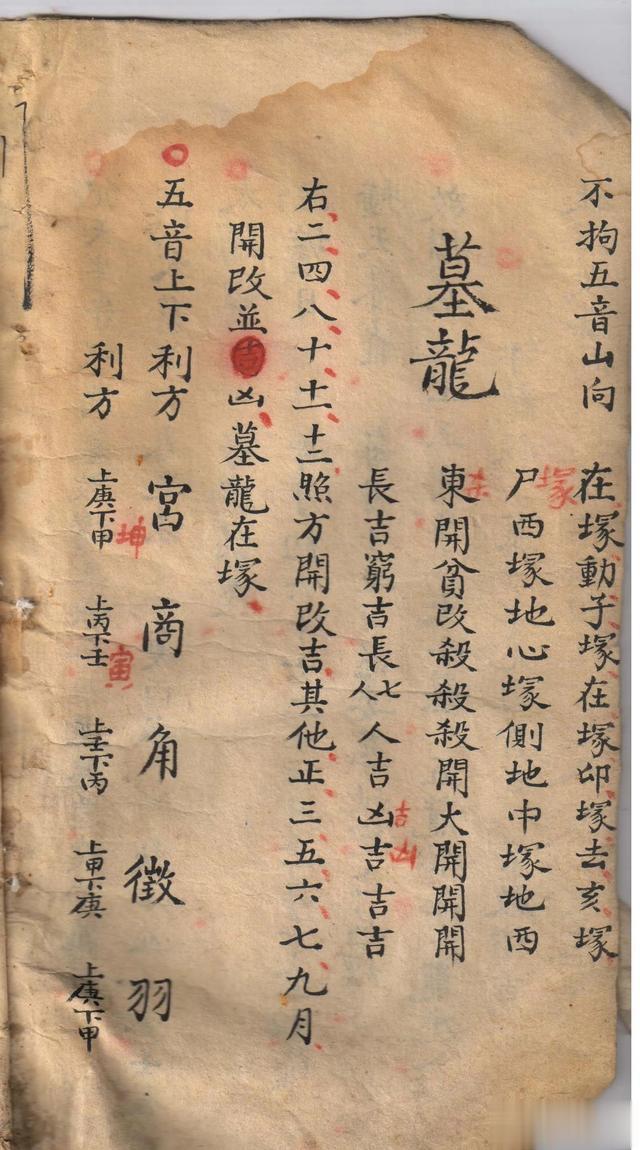 不拘五音山向
在塚動子塚在塚卯塚去亥塚
尸西塚地心塚側地中塚地西
塚
墓龍
東開貧改殺殺殺開大開開開
長吉窮吉長七人人吉凶吉吉吉
吉凶
右二四八十十一十二照方開改吉其他正三五六七九月
開改並凶墓龍在塚
五音上下利方 宮 商 角 徵 羽
坤 寅
利方 上庚下甲 上丙下壬 上壬下丙 上甲下庚 上庚下甲